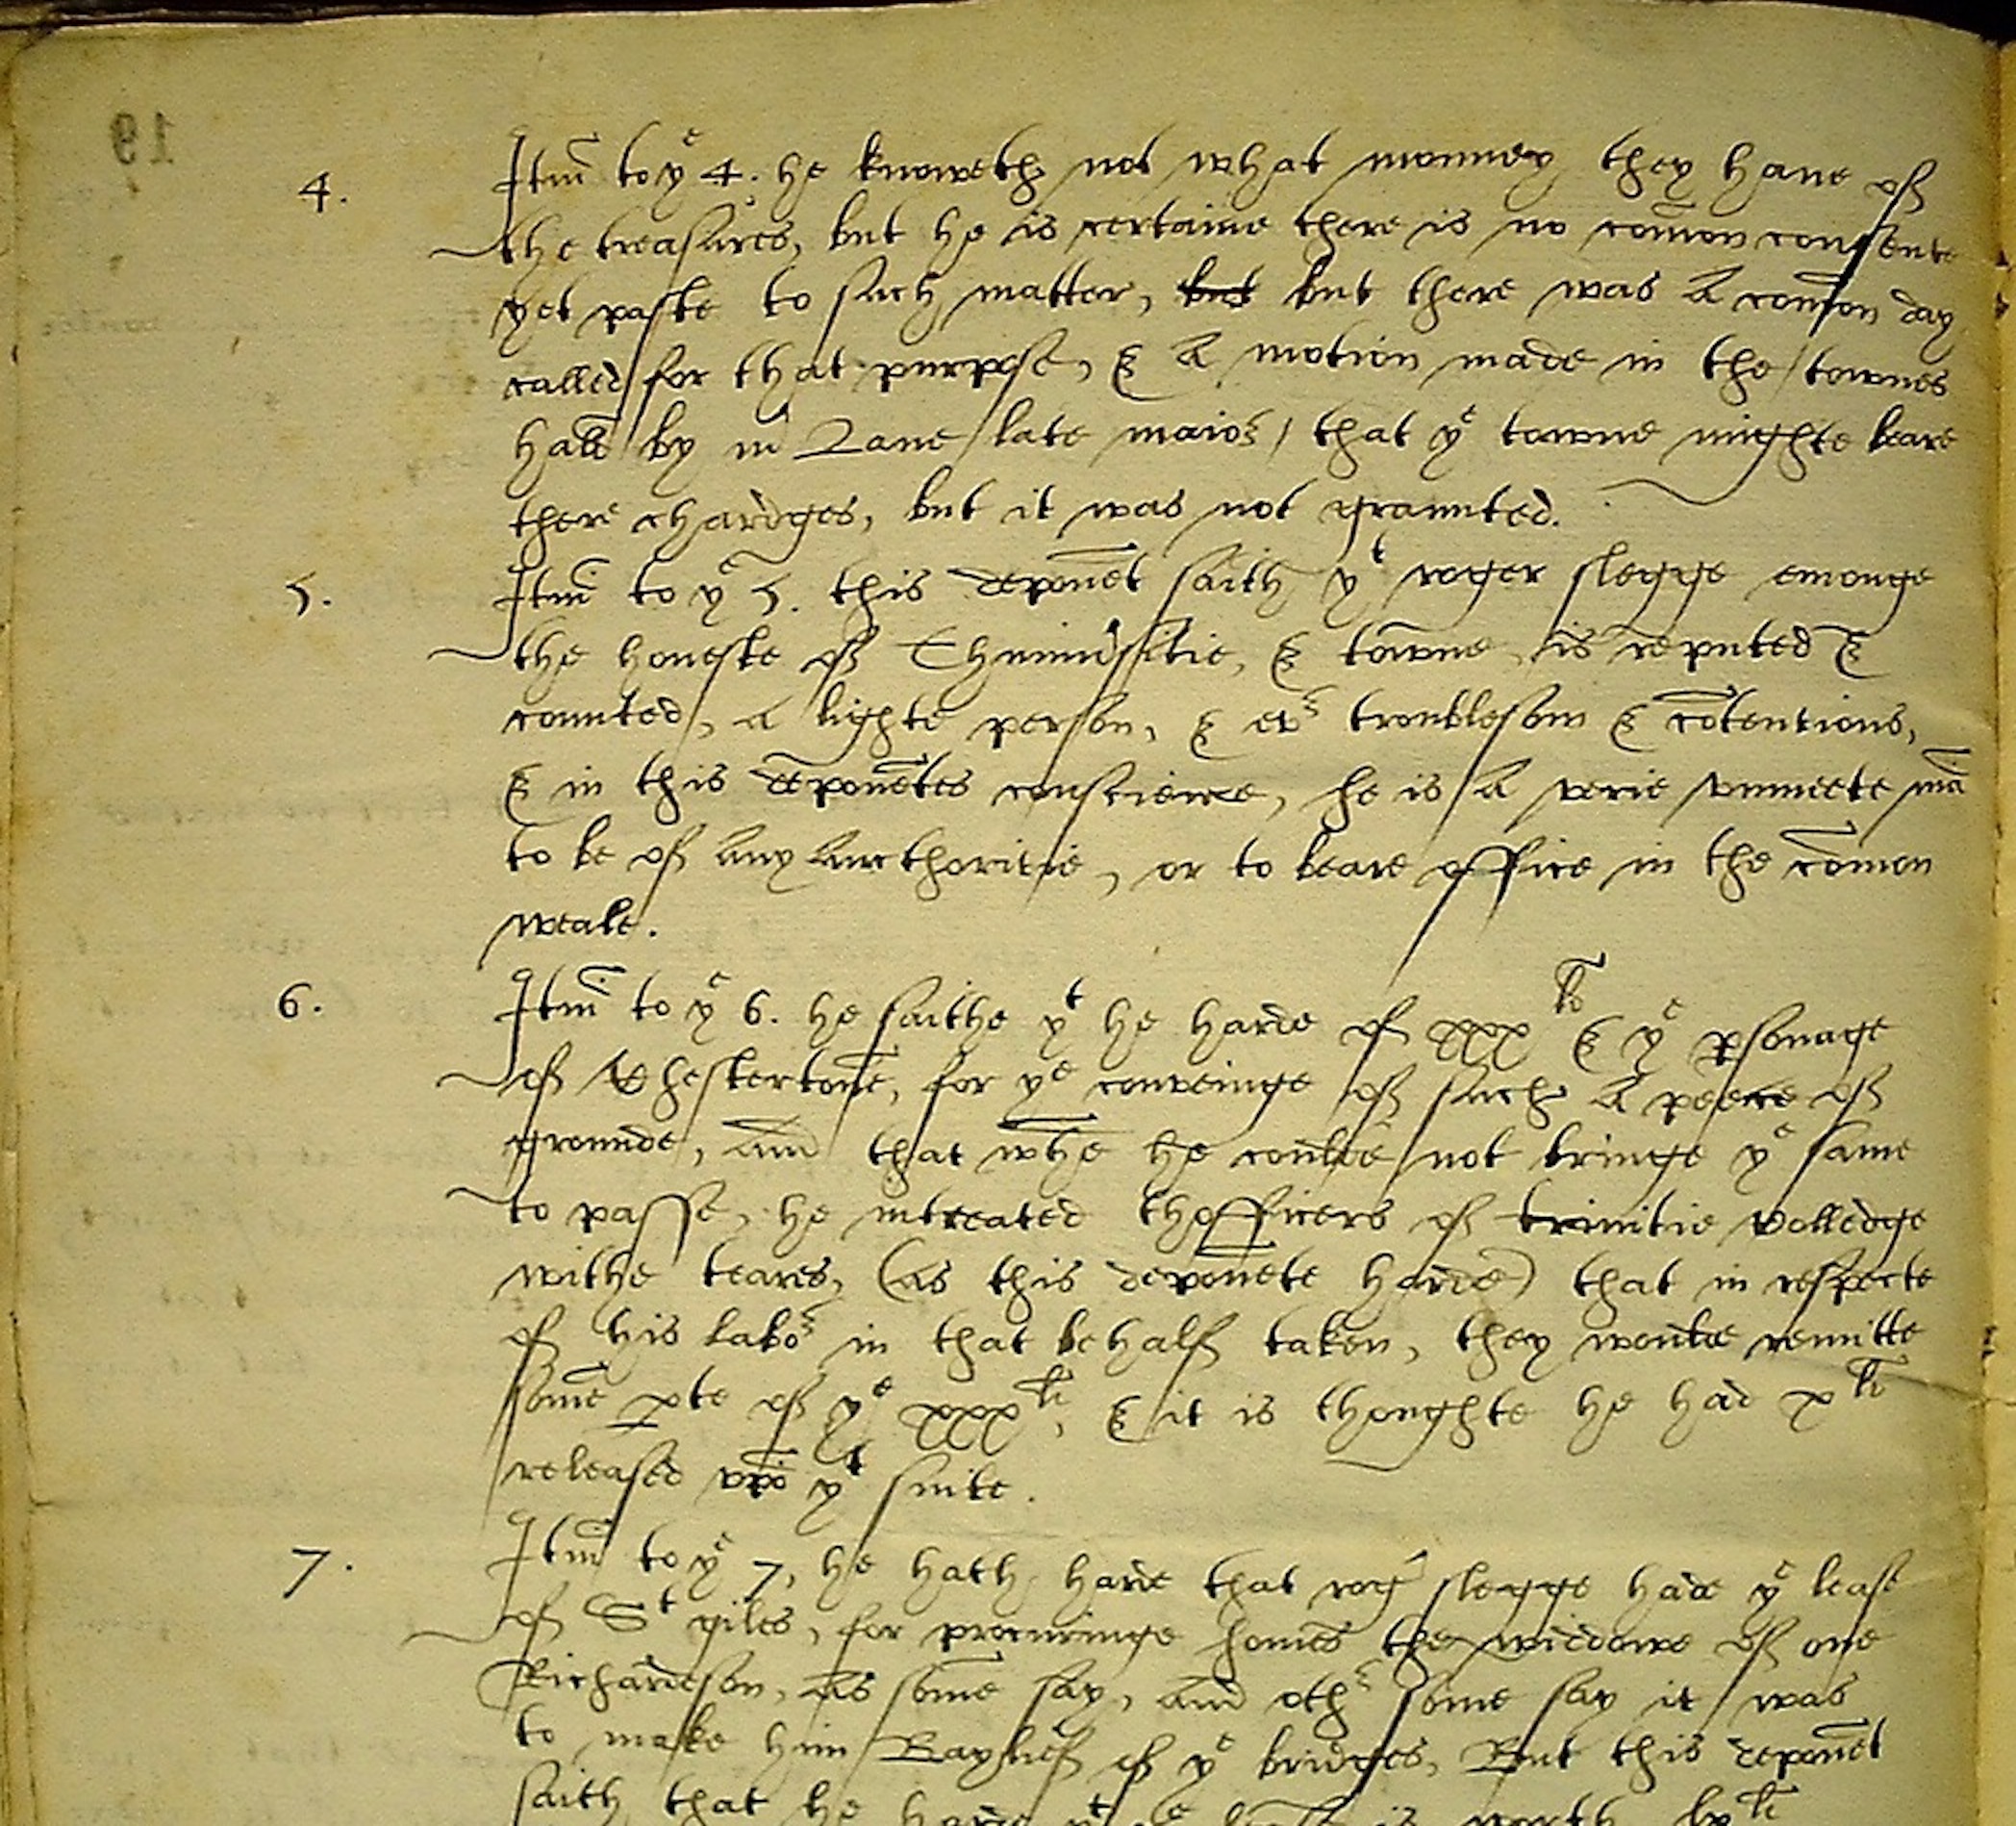 19
4. Itm̃ to yᵉ 4. he knoweth not what monney they haue of
the treasures, but he is certaine there is no com̃on consente
yet paste to such matter, but but there was A com̃on day
called for that purpose, & A motion made in the townes
hall by mʳ Lane late maioʳ, that yᵉ towne mighte beare
there chardges, but it was not graunted.
5. Itm̃ to yᵉ 5. this deponẽt saith yᵗ roger slegge emonge
the honeste of Thuniũsitie, & towne is reputed &
counted, a lighte person, & eũ troublesom & cõtentious,
& in this deponẽtes conscience, he is A verie vnmeete mã
to be of Any Aucthoritie, or to beare office in the com̃on
weale.
6. Itm̃ to yᵉ 6. he saithe yᵗ he harde of xxxˡⁱ & yᵉ ꝑsonage
of Chestertone, for yᵉ conveinge of such A peece of
grounde, And that whẽ he coulde not bringe yᵉ same
to passe, he intreated thofficers of trinitie Colledge
withe teares, (as this deponẽte harde) that in respecte
of his laboʳ in that behalf taken, they woulde remitte
some ꝑte of yᵉ xxxˡⁱ, & it is thoughte he had xˡⁱ
released vpõ yᵗ suite.
7. Itm̃ to yᵉ 7, he hath harde that rog̃ slegge hade yᵉ lease
of Sᵗ giles, for procuringe Jomes the widdowe of one
Richardeson, As some say, And othʳ some say it was
to make him Baylief of yᵉ bridges, But this deponẽt
saith that he harde yᵗ yᵉ is worth lxˡⁱ